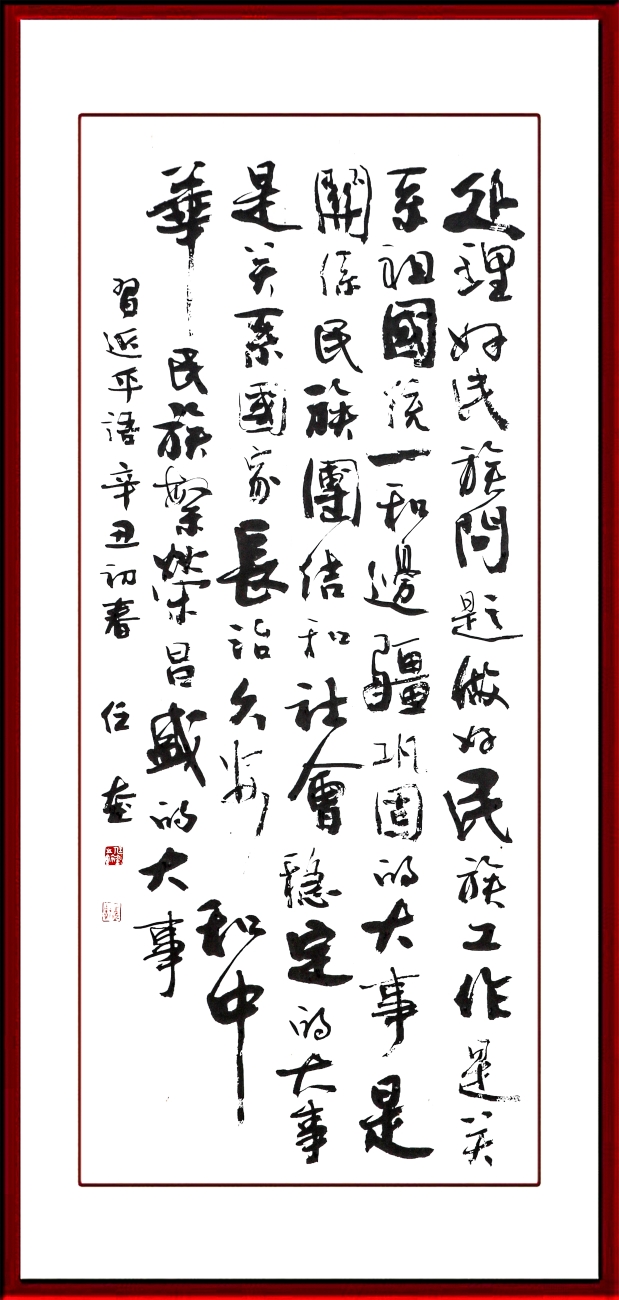 处理好民族問題做好民族工作是关
系祖國統一和邊疆巩固的大事是
關係民族團结和社會穩定的大事
是关系國家長治久安和中
華民族繁榮昌盛的大事
習近平語辛丑初春 任